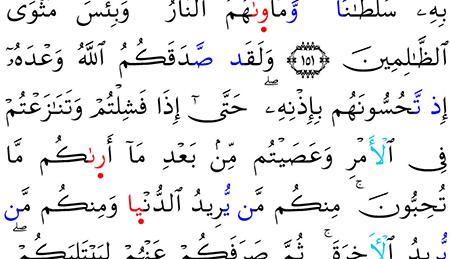 بِهِۦ سُلْطَٰنًا وَّمَأْوٜىٰهُمُ ٱلنَّارُ وَبِئْسَ مَثْوَى
ٱلظَّٰلِمِينَ ۝١٥١ وَلَقَد صَّدَقَكُمُ ٱللَّهُ وَعْدَهُۥٓ
إِذ تَّحُسُّونَهُم بِإِذْنِهِۦ ۖ حَتَّىٰٓ إِذَا فَشِلْتُمْ وَتَنَٰزَعْتُمْ
فِى ٱلْأَمْرِ وَعَصَيْتُم مِّنۢ بَعْدِ مَآ أَرٜىٰكُم مَّا
تُحِبُّونَ ۚ مِنكُم مَّن يُّرِيدُ ٱلدُّنْيٜا وَمِنكُم مَّن
يُّرِيدُ ٱلْأَخِرَةَ ۚ ثُمَّ صَرَفَكُمْ عَنْهُمْ لِيَبْتَلِيَكُمْ ۖ